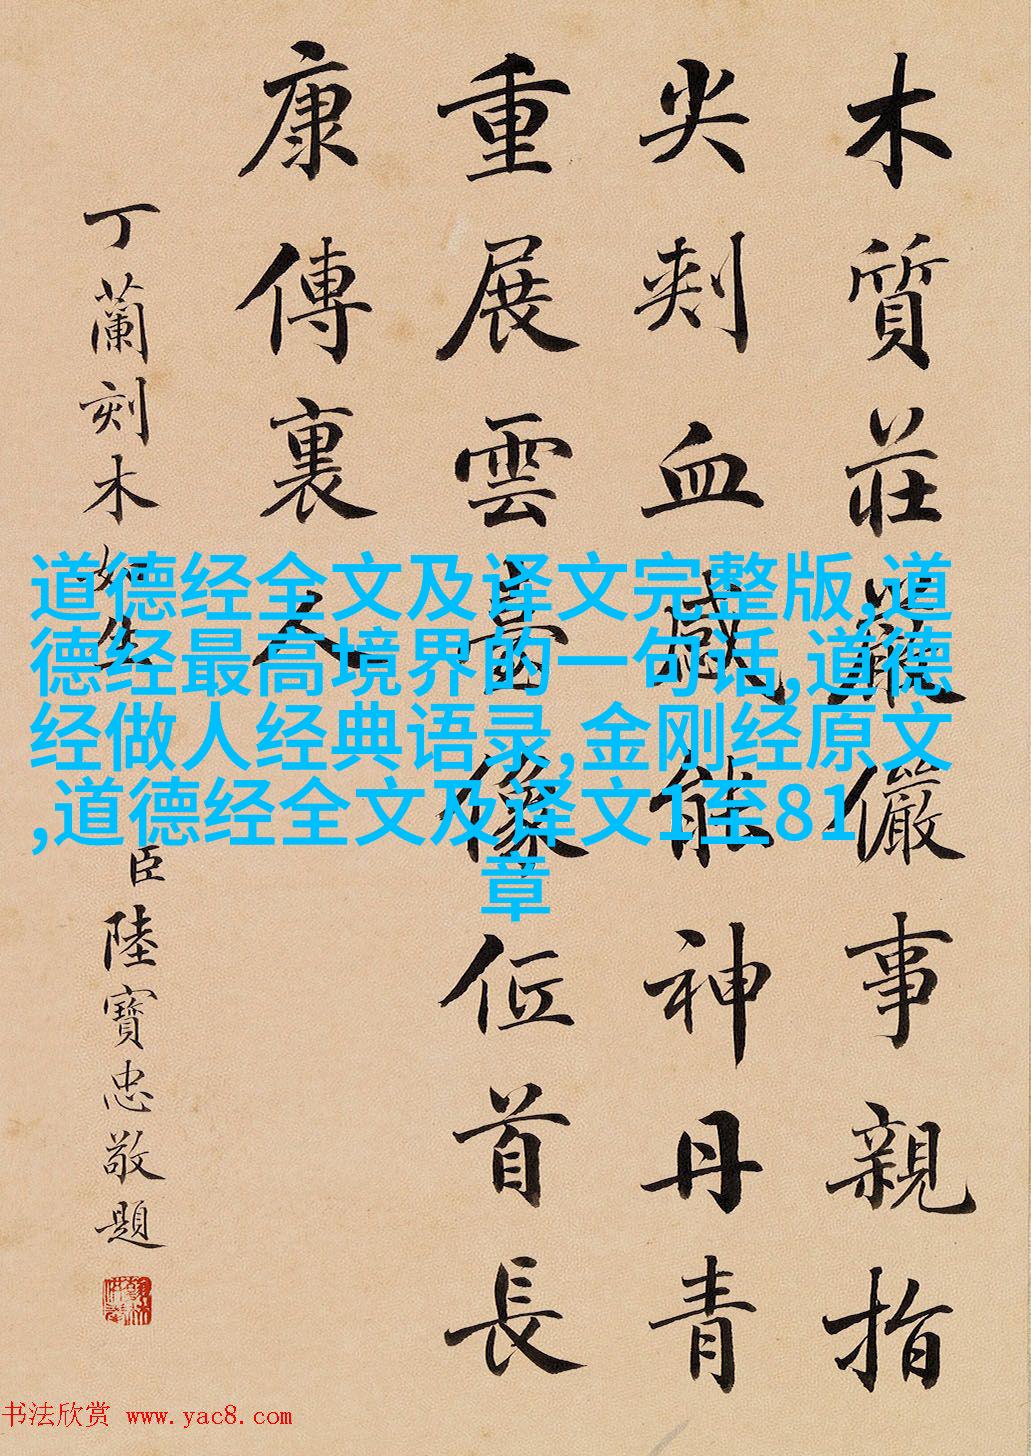 木質莊嚴儼事親指
尖刾血感能神丹青
重展雲臺像低首長
康傳裏人
丁蘭刻木如生
臣陸寶忠敬題
道德经全文及译文完整版,道
德经最高境界的一句话,道德
经做人经典语录,金刚经原文
,道德经全文及译文1至81
章
书法欣赏 www.yac8.com